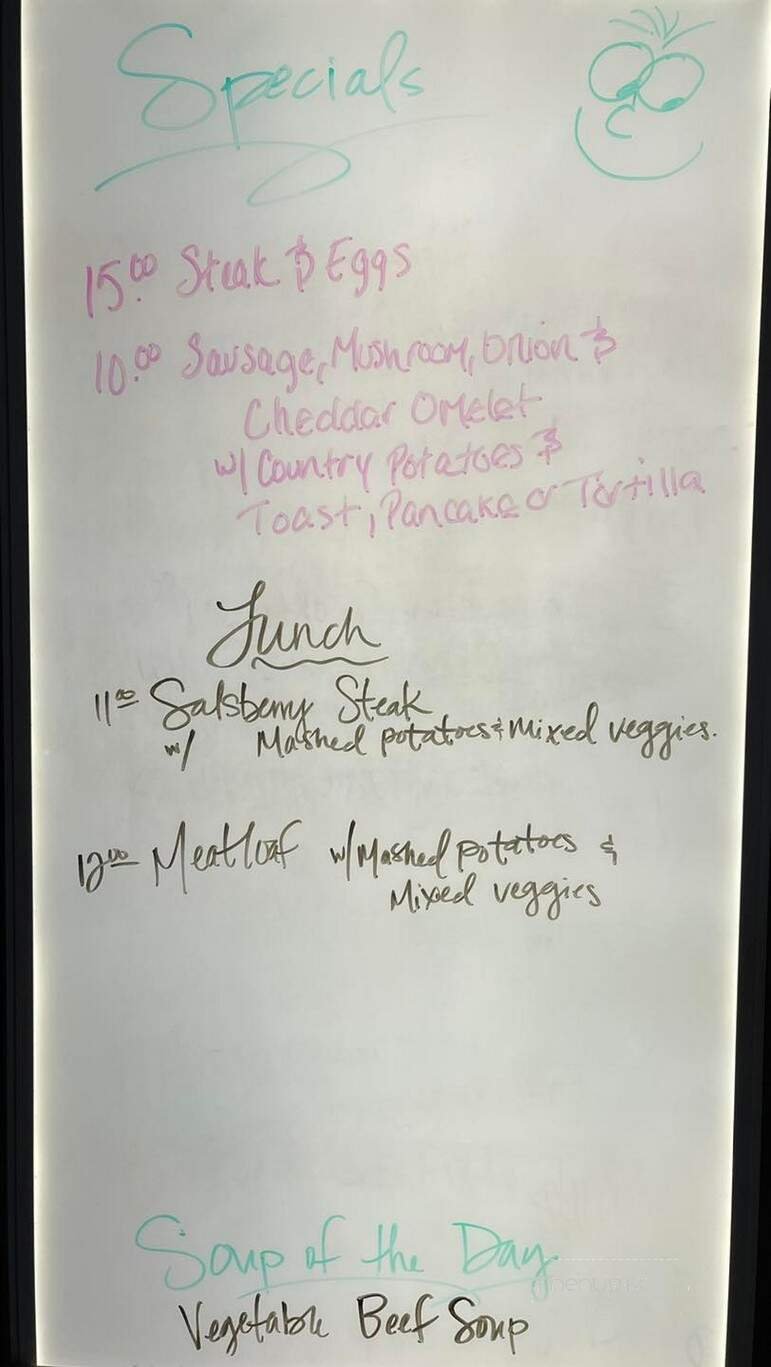 Specials
15.00 Steak & Eggs
10.00 Sausage, Mushroom, Onion &
Cheddar Omelet
w/ Country Potatoes &
Toast, Pancake or Tortilla
Lunch
11.00 Salsberry Steak
w/ Mashed potatoes & Mixed veggies.
12.00 Meatloaf w/ Mashed potatoes &
Mixed veggies
Soup of the Day
Vegetable Beef Soup